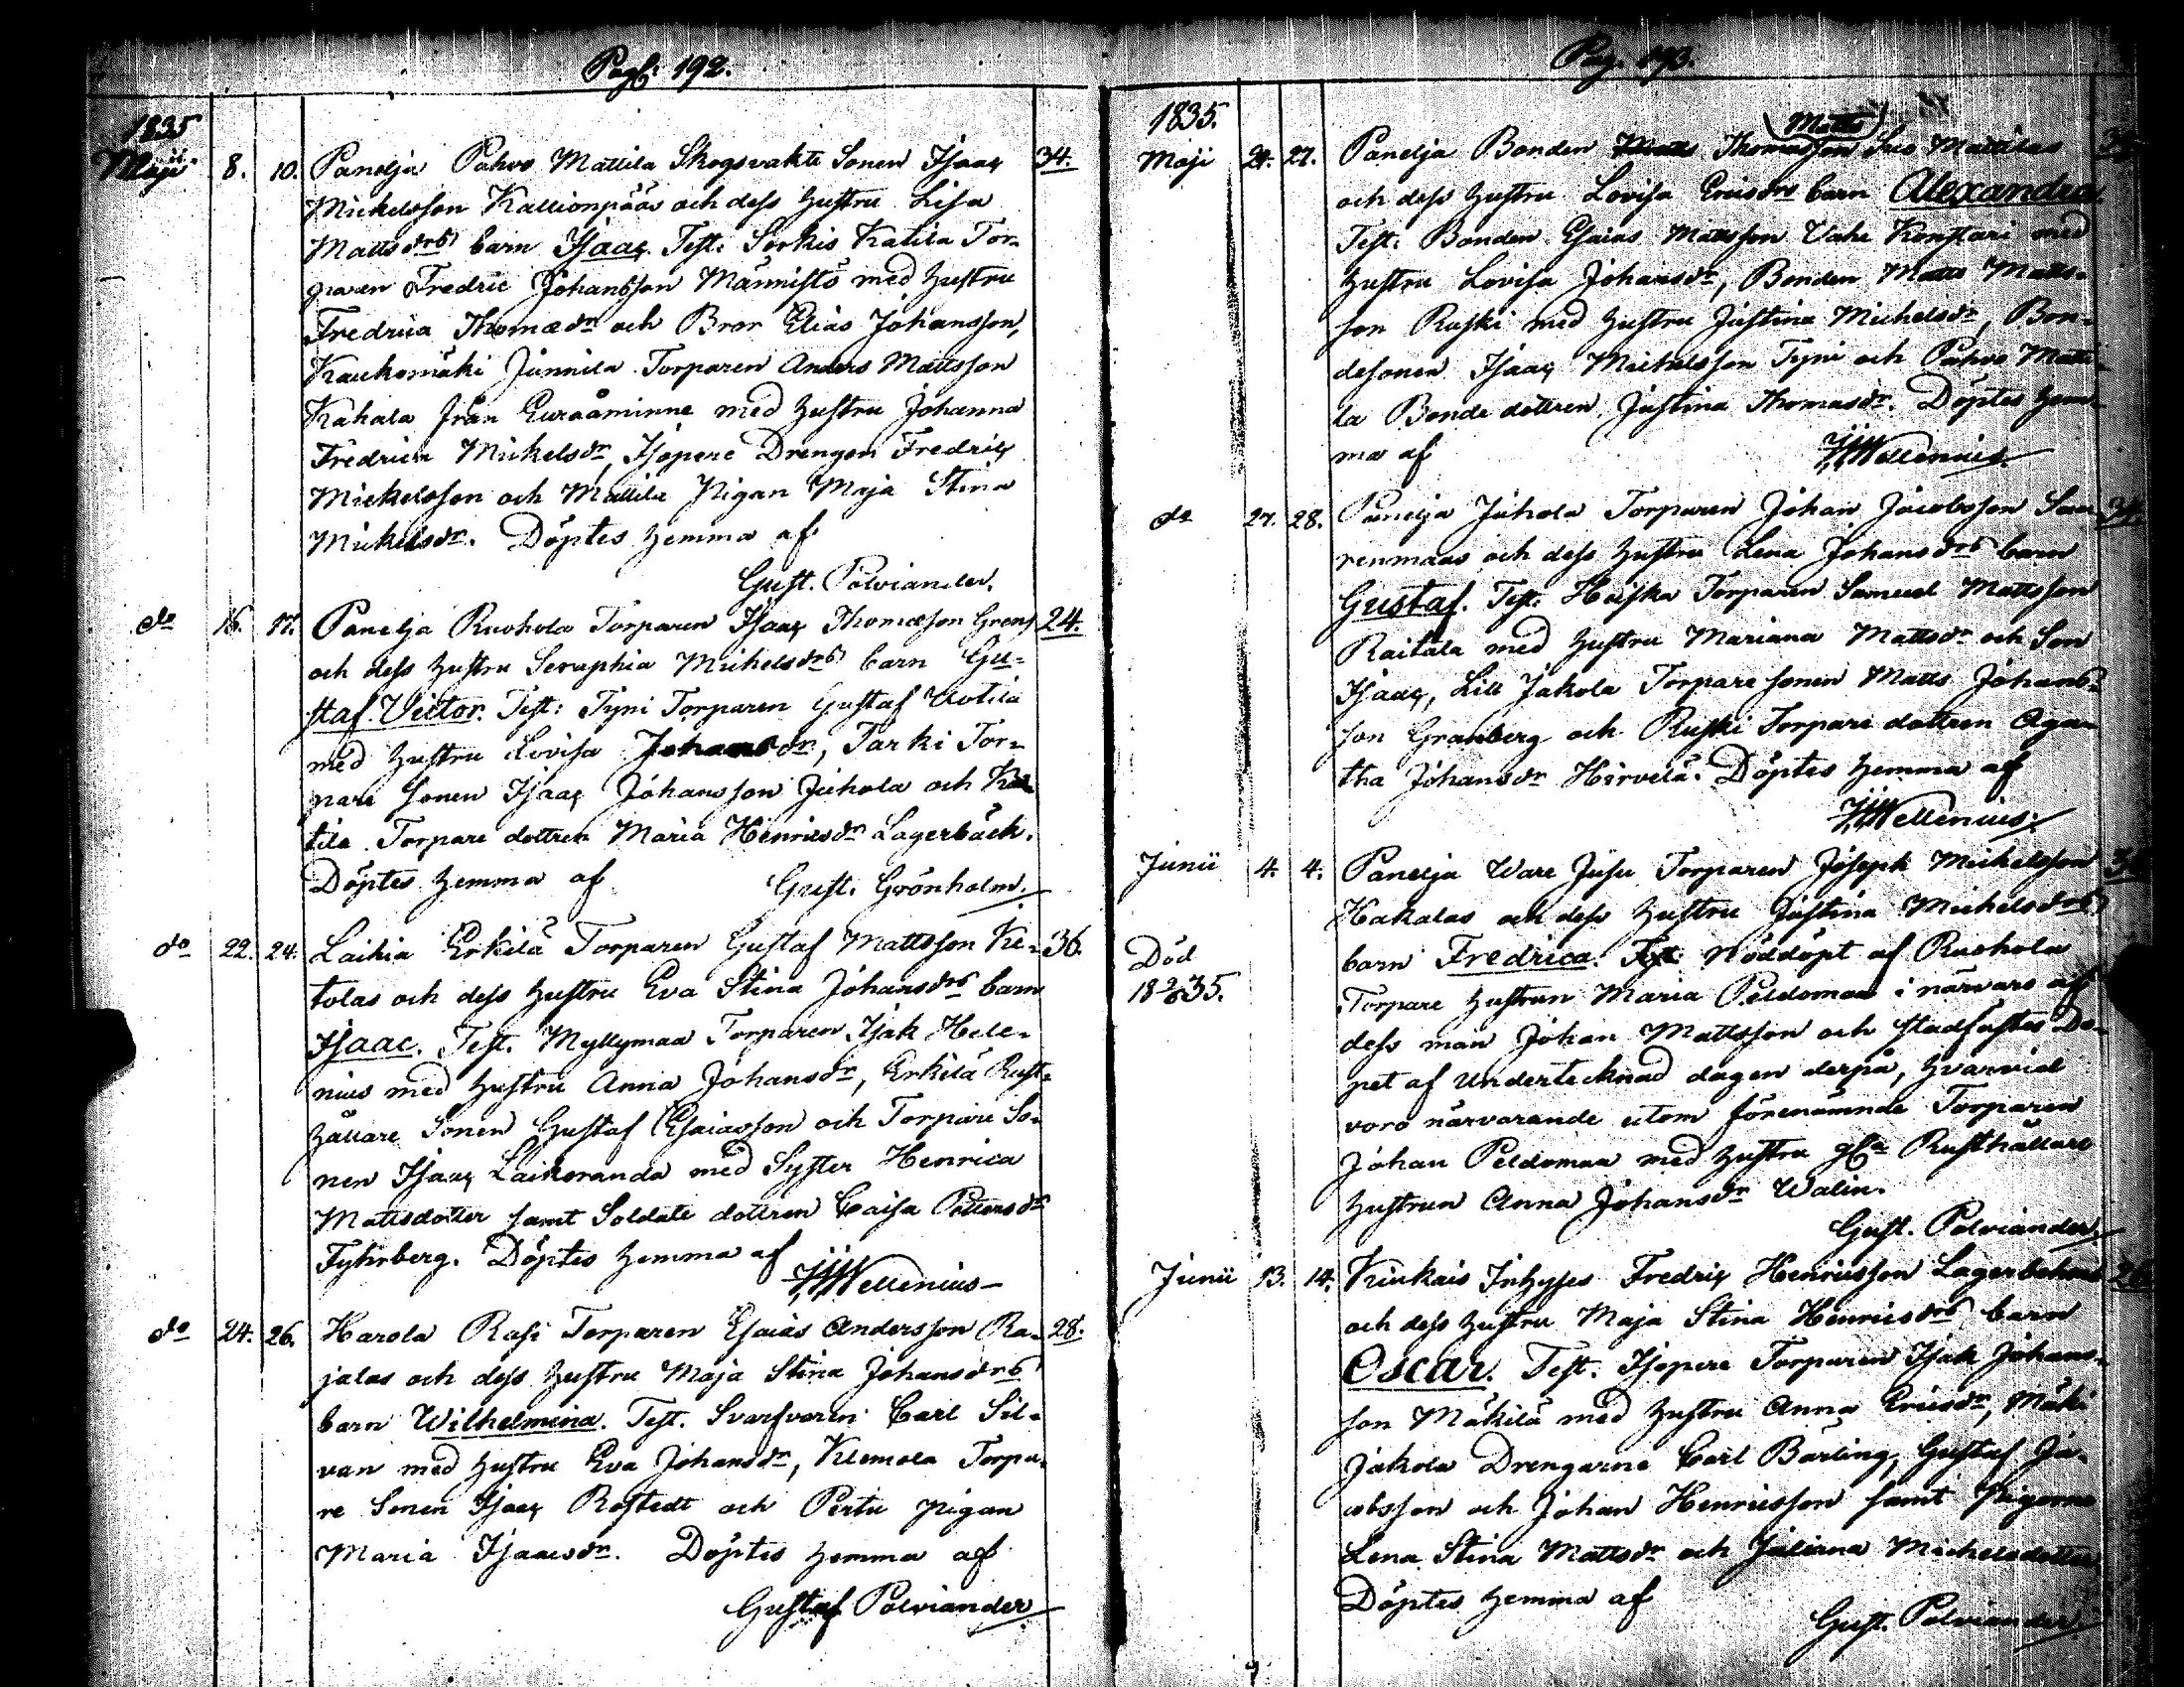 Pag: 192.
1835
Maji 8. 10. Panelja Pahvo Mattila Skogsvakts Sonen Isaac 34.
Mickelsson Kallionpääs och dess hustru Lisa
Mattsdrs barn Isaac. Test: Sorkis Katila Tor-
paren Fredric Johansson Männistö med hustru
Fredrica Thomædr och Bror Elias Johansson,
Kaukomäki Junnila Torparen Anders Mattsson
Kahala från Euraåminne med hustru Johanna
Fredrica Mickelsdr, Isopere Drengen Fredric
Mickelsson och Mattila Pigan Maja Stina
Mickelsdr. Döptes hemma af
Gust. Polviander.
do 16. 17. Panelja Ruohola Torparen Isaac Thomæson Gröns 24.
och dess hustru Seraphia Michelsdrs barn Gu-
staf Victor. Test: Tyni Torparen Gustaf Uotila
med hustru Lovisa Johansdr, Tarki Tor-
pare Sonen Isaac Johansson Juhola och Ka-
tila Torpare dottren Maria Henricsdr Lagerbäck.
Döptes hemma af Gust. Grönholm.
do 22. 24. Laihia Erkilä Torparen Gustaf Mattsson Ke- 36.
tolas och dess hustru Eva Stina Johansdrs barn
Isaac. Test. Myllymaa Torparen Isak Hele-
nius med hustru Anna Johansdr, Erkilä Rust-
hållare Sonen Gustaf Esaiasson och Torpare So-
nen Isaac Laikoranda med Syster Henrica
Mattsdotter samt Soldats dottren Caisa Pettersdr
Fyhrberg. Döptes hemma af
Wellenius
do 24. 26. Harola Rasi Torparen Esaias Andersson Ra- 28.
jalas och dess hustru Maja Stina Johansdrs
barn Wilhelmina. Test. Svarfvaren Carl Sil-
van med hustru Eva Johansdr, Klemola Torpa-
re Sonen Isaac Rostedt och Pertu pigan
Maria Isaacsdr. Döptes hemma af
Gustaf Polviander
Pag. 193.
1835.
Matts
Maji 24. 27. Panelja Bonden Matts Thomasson Suo Mattilas
och dess hustru Lovisa Ericsdrs barn Alexandra.
Test: Bonden Esaias Mattsson Vaha Konstari med
hustru Lovisa Johansdr, Bonden Matts Matts-
son Ruski med hustru Justina Michelsdr, Bon-
desonen Isaac Michelsson Tyni och Pahvo Matti-
la Bonde dottren Justina Thomasdr. Döptes hem-
ma af Wellenius.
do 27. 28. Panelja Juhola Torparen Johan Jacobsson Saa- 34.
renmaas och dess hustru Lena Johansdrs barn
Gustaf. Test. Heiska Torparen Samuel Mattsson
Raitala med hustru Mariana Mattsdr och Son
Isaac, Lill Jakola Torpare sonen Matts Johans-
son Granberg och Ruski Torpare dottren Aga-
tha Johansdr Hirvelä. Döptes hemma af
Wellenius.
Junii 4. 4. Panelja Ware Jusu Torparen Joseph Mickelsson
Hakalas och dess hustru Justina Michelsdrs
Död
barn Fredrica. Test. Nöddöpt af Ruohola
18 35.
Torpare hustrun Maria Peldomaa i närvaro af
dess man Johan Mattsson och stadfästes Do-
pet af Undertecknad dagen derpå, hvarvid
voro närvarande utom förenämnde Torparen
Johan Peldomaa med hustru Rusthållare
hustrun Anna Johansdr Walin.
Gust. Polviander.
Junii 13. 14. Kiukais Inhyses Fredric Henricsson Lagerbohms
och dess hustru Maja Stina Henricsdrs barn
Oscar. Test. Isopere Torparen Isak Johans-
son Mäkilä med hustru Anna Ericsdr, Mäki
Jakola Drengarne Carl Bärling, Gustaf Ja-
cobsson och Johan Henricsson samt Pigorna
Lena Stina Mattsdr och Juliana Michelsdotter
Döptes hemma af
Gust. Polviander.